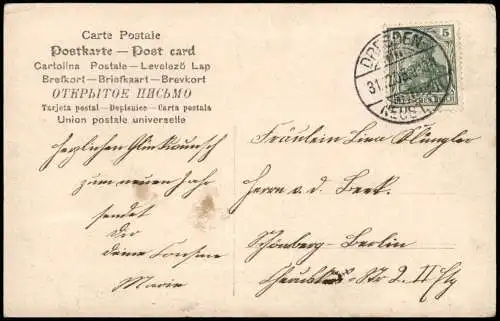 Carte Postale
Postkarte — Post card
Cartolina Postale — Levelező Lap
Brefkort — Briefkaart — Brevkort
ОТКРЫТОЕ ПИСЬМО
Tarjeta postal — Dopisnice — Carta postala
Union postale universelle
herzlichen Glückwunsch
zum neuen Jahr
sendet
Dir
deine Cousine
Marie
DRESDEN
NEUST.
5
Fräulein Lina
Herrn v. d. Beek.
Schöneberg-Berlin
Str 2. II Etg